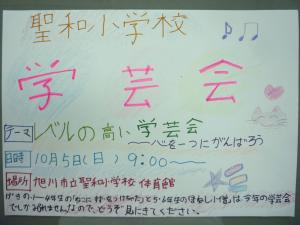 聖和小学校
学芸会
テーマ レベルの高い学芸会
～心を一つにがんばろう
日時 10月5日(日) 9:00～
場所 旭川市立聖和小学校 体育館
げきの1～4年生の
と5・6年生の
は今年の学芸会
でしかみれませんなので、どうぞ見にきてください。